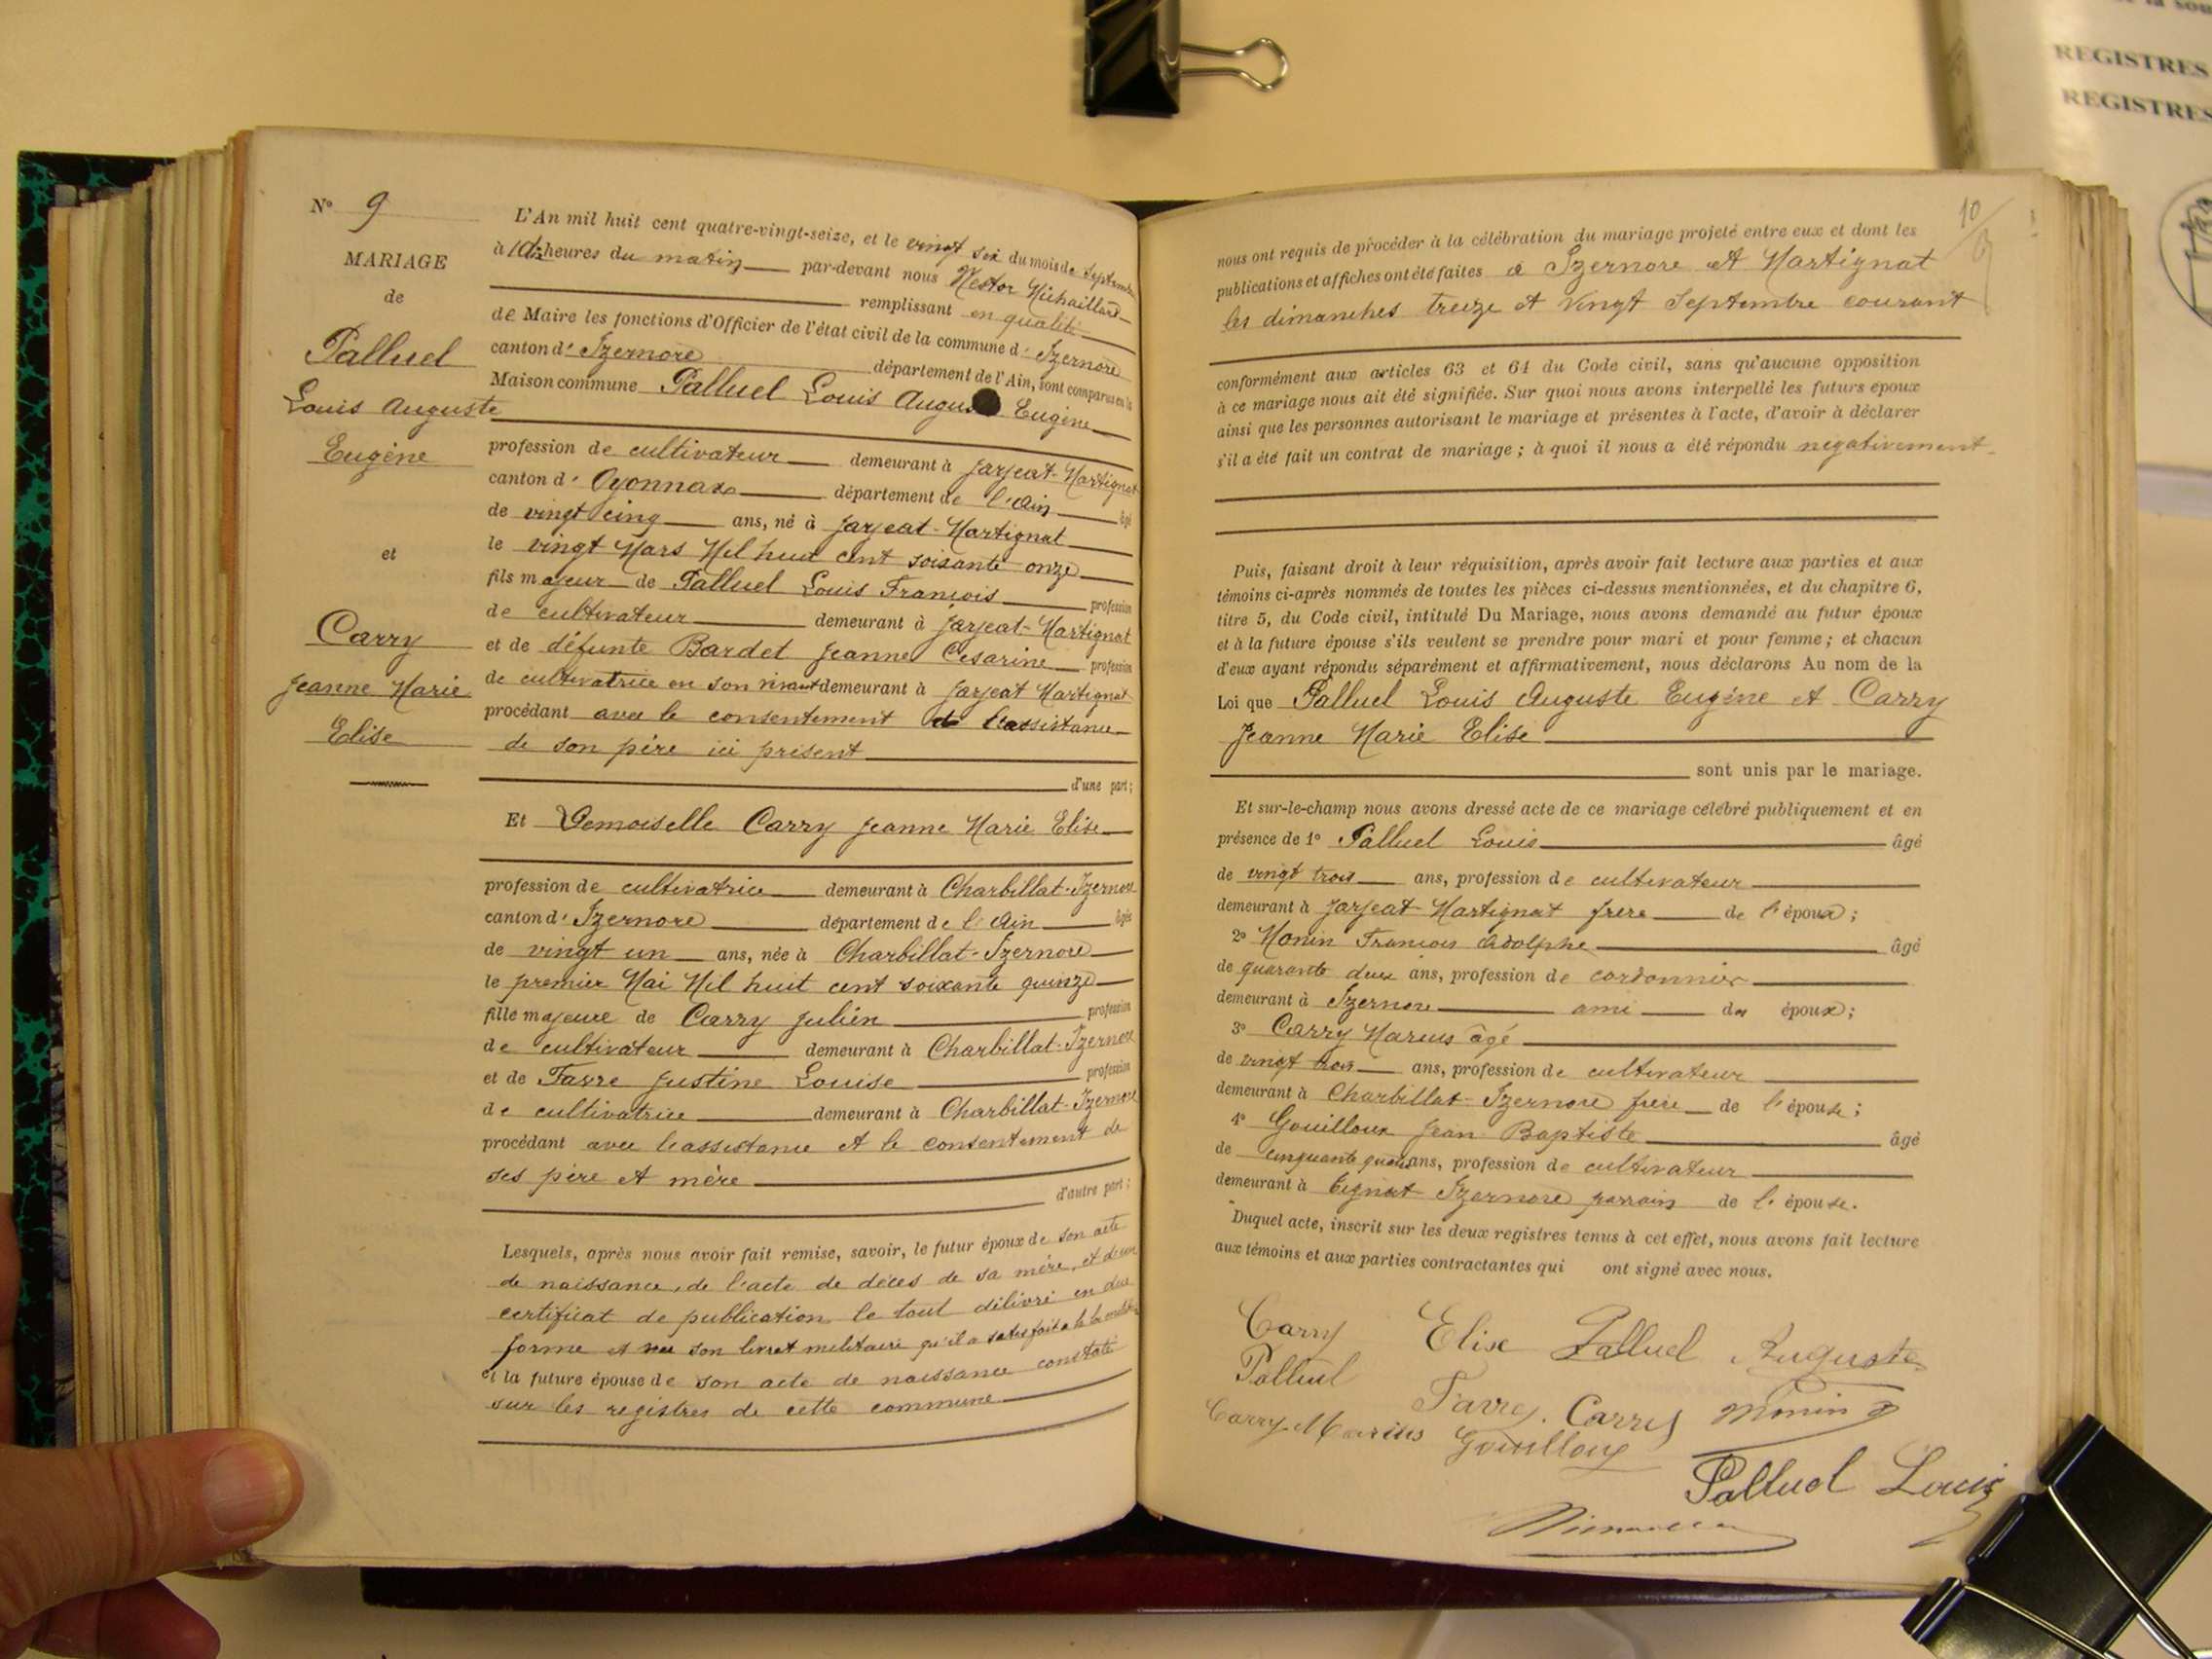 N° 9
MARIAGE
de
Palluel
Louis Auguste
Eugène
et
Carry
Jeanne Marie
Elise
L'An mil huit cent quatre-vingt-seize, et le vingt six du mois de Septembre
à 10 heures du matin par-devant nous Nestor Michaillard
remplissant en qualité
de Maire les fonctions d'Officier de l'état civil de la commune d' Izernore
canton d' Izernore département de l'Ain, sont comparus en la
Maison commune Palluel Louis Auguste Eugène
profession de cultivateur demeurant à Jarjeat-Martignat
canton d' Oyonnax département de l'Ain âgé
de vingt cinq ans, né à Jarjeat-Martignat
le vingt Mars Mil huit cent soixante onze
fils majeur de Palluel Louis François profession
de cultivateur demeurant à Jarjeat-Martignat
et de défunte Bardet Jeanne Cesarine profession
de cultivatrice en son vivant demeurant à Jarjeat Martignat
procédant avec le consentement et l'assistance
de son père ici présent
d'une part;
Et Demoiselle Carry Jeanne Marie Elise
profession de cultivatrice demeurant à Charbillat-Izernore
canton d' Izernore département de l'Ain âgée
de vingt un ans, née à Charbillat-Izernore
le premier Mai Mil huit cent soixante quinze
fille majeure de Carry Julien profession
de cultivateur demeurant à Charbillat-Izernore
et de Favre Justine Louise profession
de cultivatrice demeurant à Charbillat-Izernore
procédant avec l'assistance et le consentement de
ses père et mère
d'autre part;
Lesquels, après nous avoir fait remise, savoir, le futur époux de son acte
de naissance, de l'acte de décès de sa mère, et d'un
certificat de publication le tout délivré en due
forme et vu son livret militaire qu'il a satisfait à la loi militaire
et la future épouse de son acte de naissance constaté
sur les registres de cette commune
10
nous ont requis de procéder à la célébration du mariage projeté entre eux et dont les
publications et affiches ont été faites à Izernore et Martignat
les dimanches treize et vingt Septembre courant
conformément aux articles 63 et 64 du Code civil, sans qu'aucune opposition
à ce mariage nous ait été signifiée. Sur quoi nous avons interpellé les futurs époux
ainsi que les personnes autorisant le mariage et présentes à l'acte, d'avoir à déclarer
s'il a été fait un contrat de mariage; à quoi il nous a été répondu negativement
Puis, faisant droit à leur réquisition, après avoir fait lecture aux parties et aux
témoins ci-après nommés de toutes les pièces ci-dessus mentionnées, et du chapitre 6,
titre 5, du Code civil, intitulé Du Mariage, nous avons demandé au futur époux
et à la future épouse s'ils veulent se prendre pour mari et pour femme; et chacun
d'eux ayant répondu séparément et affirmativement, nous déclarons Au nom de la
Loi que Palluel Louis Auguste Eugène et Carry
Jeanne Marie Elise
sont unis par le mariage.
Et sur-le-champ nous avons dressé acte de ce mariage célébré publiquement et en
présence de 1° Palluel Louis âgé
de vingt trois ans, profession de cultivateur
demeurant à Jarjeat-Martignat frère de l'époux;
2° Monin François Adolphe âgé
de quarante deux ans, profession de cordonnier
demeurant à Izernore ami des époux;
3° Carry Marius âgé
de vingt trois ans, profession de cultivateur
demeurant à Charbillat-Izernore frère de l'épouse;
4° Gouilloux Jean Baptiste âgé
de cinquante quatre ans, profession de cultivateur
demeurant à Tignat Izernore parrain de l'épouse.
Duquel acte, inscrit sur les deux registres tenus à cet effet, nous avons fait lecture
aux témoins et aux parties contractantes qui ont signé avec nous.
Carry Elise Palluel Auguste
Palluel Favre. Carry Monin
Carry Marius Gouilloux
Palluel Louis
REGISTRES
REGISTRES